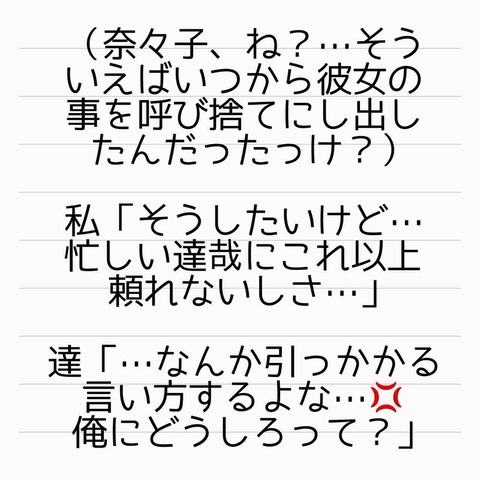 （奈々子、ね？…そう
いえばいつから彼女の
事を呼び捨てにし出し
たんだったっけ？）
私「そうしたいけど…
忙しい達哉にこれ以上
頼れないしさ…」
達「…なんか引っかかる
言い方するよな…💢
俺にどうしろって？」